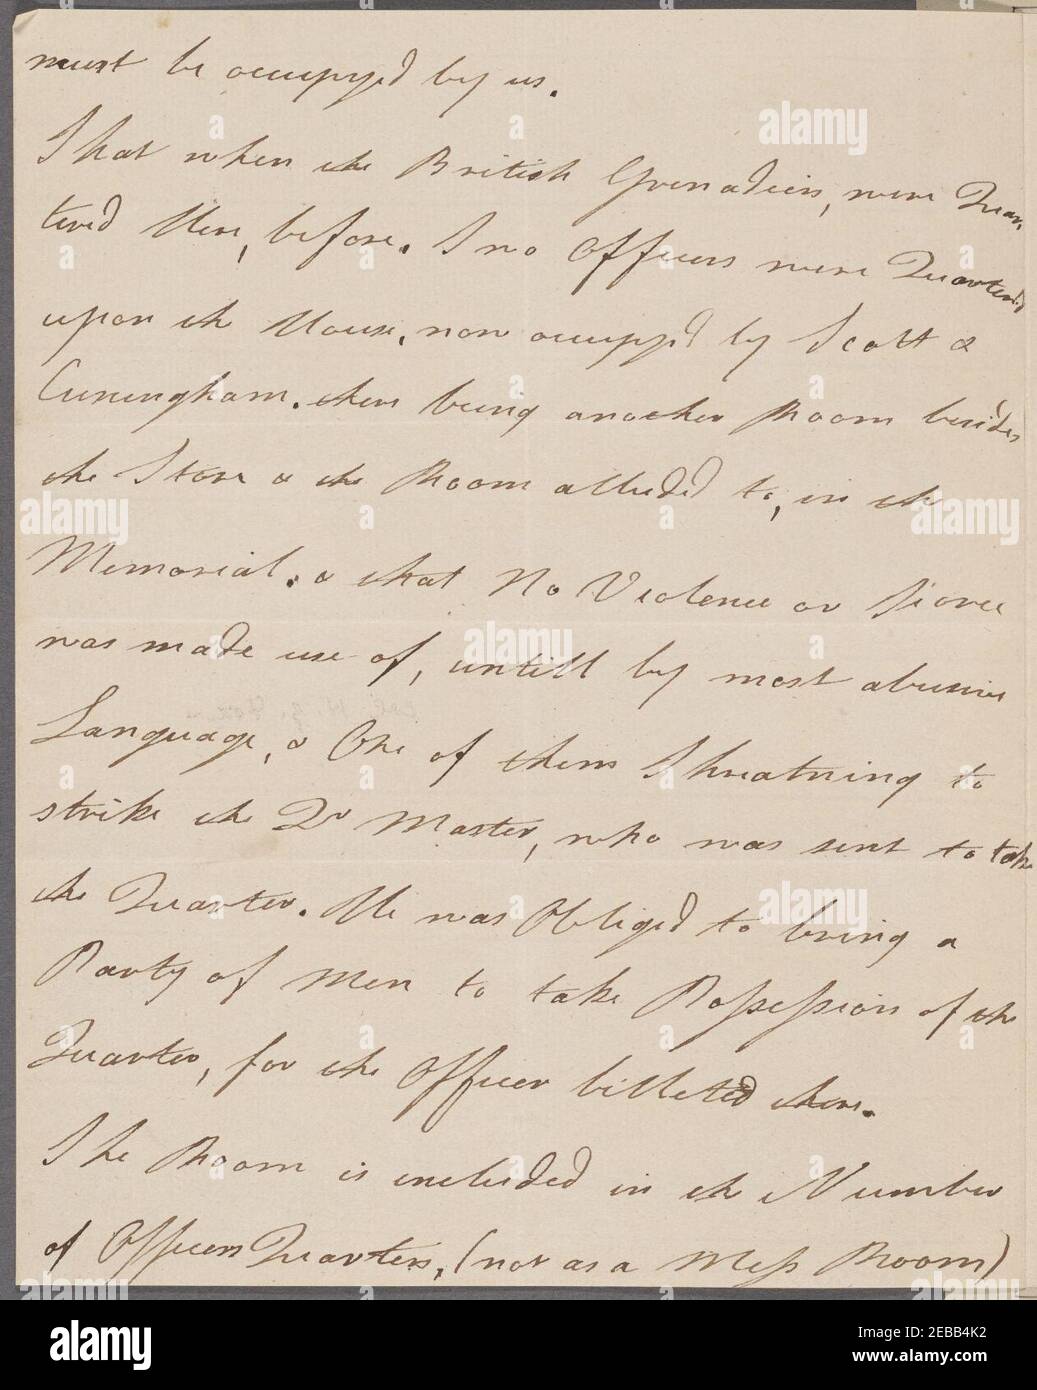 must be occupyed by us.
That when the British Grenadiers, were Quar
tered Here, before. I no Officers were Quartered
upon the House, now occuppd by Scott &
Cuningham. there being another Room besides
the Store & the Room alluded to, in the
Memorial. & that No Violence or Force
was made use of, untill by most abusive
Language, & One of them Threatning to
strike the Qr Master, who was sent to take
the Quarter. He was Obliged to bring a
Party of Men to take Possession of the
Quarter, for the Officer billeted there.
The Room is included in the Number
of Officers Quarters, (not as a Mess Room)
alamy
a
alamy
Image ID: 2EBB4K2
www.alamy.com